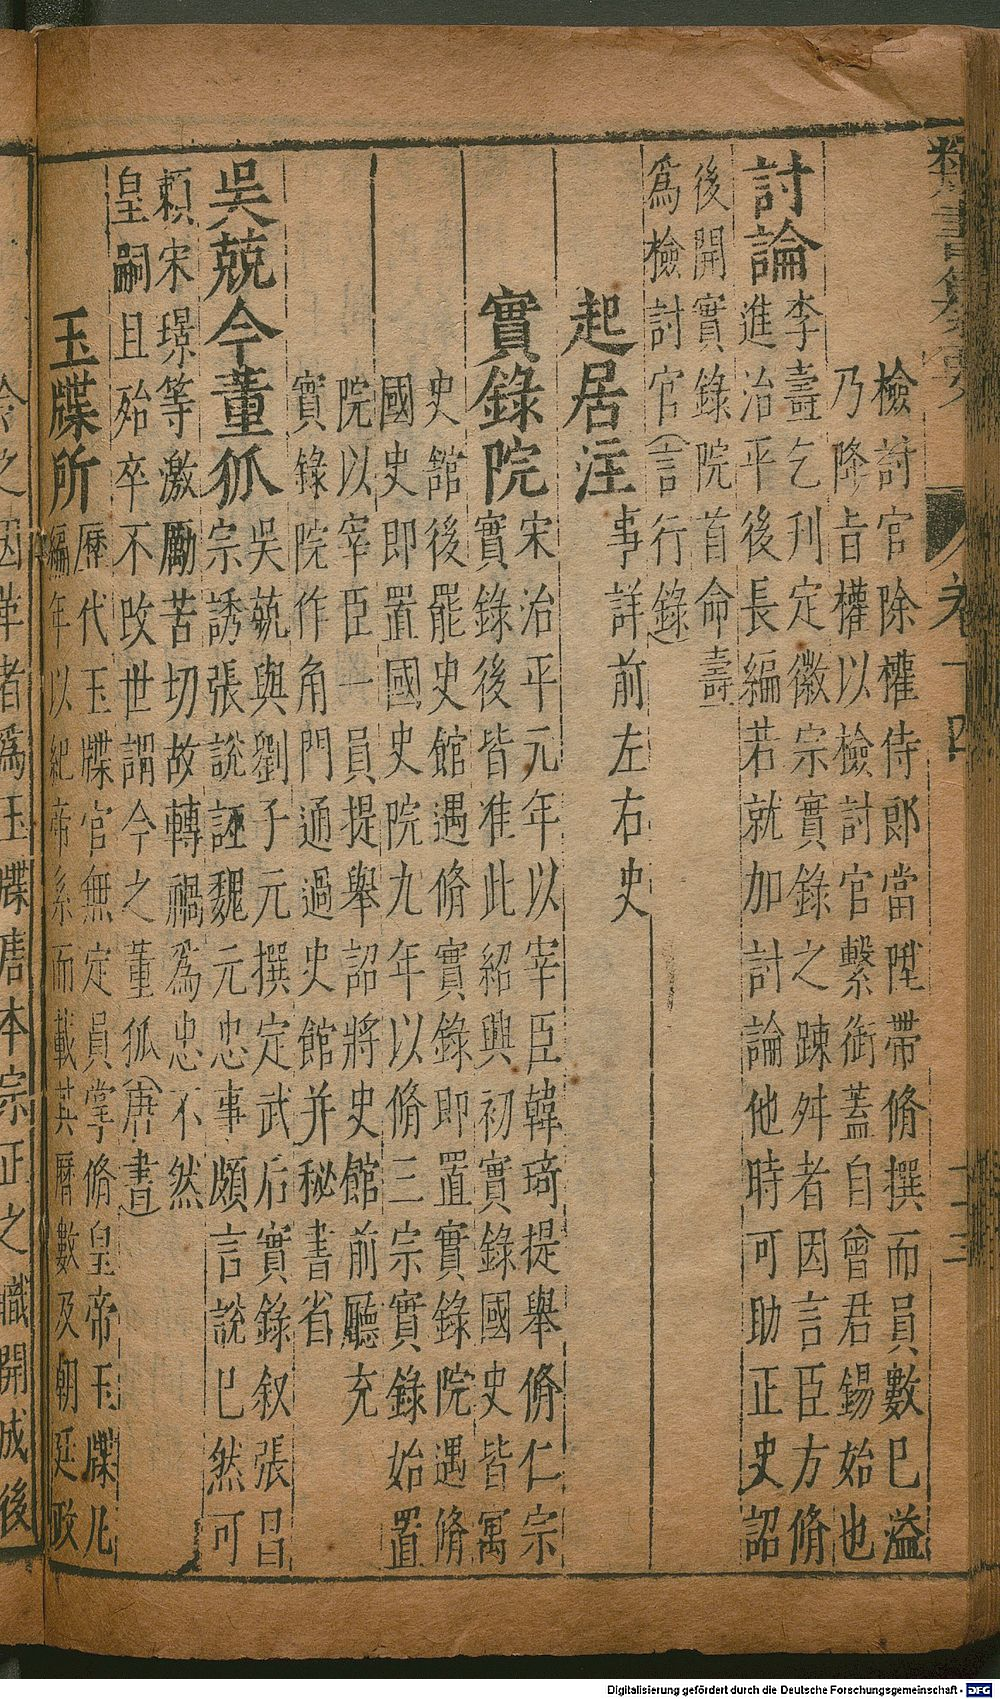 檢討官除權侍郎當陞帶脩撰而員數巳溢
乃降㫖權以檢討官繫銜蓋自曾君錫始也
討論
李壽乞刋定徽宗實錄之踈舛者因言臣方脩
進治平後長編若就加討論他時可助正史詔
後開實錄院首命壽
爲檢討官(言行錄)
起居注
事詳前左右史
實錄院
宋治平元年以宰臣韓琦提舉脩仁宗
實錄後皆准此紹興初實錄國史皆寓
史館後罷史館遇脩實錄即置實錄院遇脩
國史即置國史院九年以脩三宗實錄始置
院以宰臣一員提舉詔將史館前廳充
實錄院作角門通過史館并秘書省
吳兢今董狐
吳兢與劉子元撰定武后實錄叙張昌
宗誘張說誣魏元忠事頗言說巳然可
賴宋璟等激勵苦切故轉禍爲忠不然
皇嗣且殆卒不改世謂今之董狐(唐書)
玉牒所
歷代玉牒官無定員掌脩皇帝玉牒凡
編年以紀帝系而載其曆數及朝廷政
者爲玉牒唐本宗正之職開成後
卷十四
十三
Digitalisierung gefördert durch die Deutsche Forschungsgemeinschaft - DFG